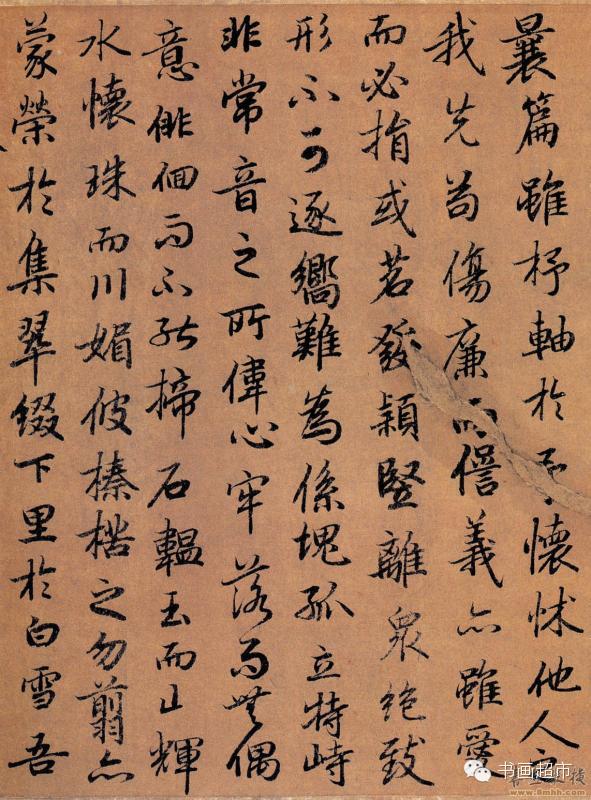 曩篇雖杼軸於予懷怵他人之
我先苟傷廉而諐義亦雖愛
而必捐或苕發穎竪離衆絶致
形不可逐嚮難為係塊孤立特峙
非常音之所偉心牢落而無偶
意俳佪而不能揥石韞玉而山輝
水懷珠而川媚彼榛楛之勿翦亦
蒙榮於集翠綴下里於白雪吾
书画超市